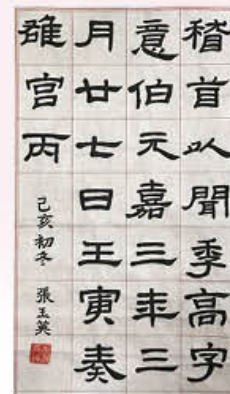 稽首以聞季高字
意伯元嘉三年三
月廿七日王寅奏
雒宫丙
己亥初冬 張玉英